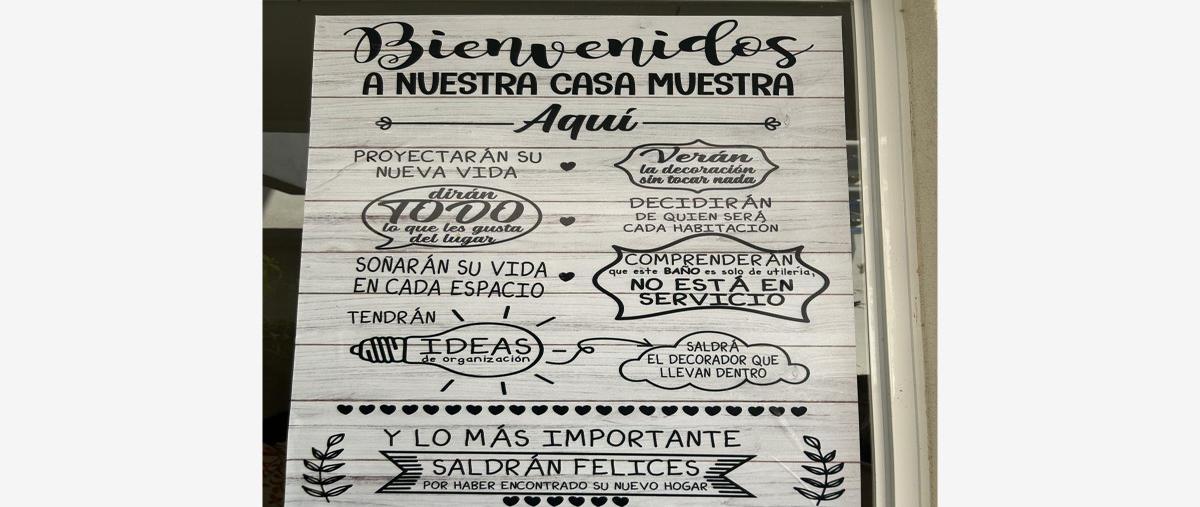 Bienvenidos
A NUESTRA CASA MUESTRA
Aquí
PROYECTARÁN SU
NUEVA VIDA
Verán
la decoración
sin tocar nada
dirán
TODO
lo que les gusta
del lugar
DECIDIRÁN
DE QUIEN SERÁ
CADA HABITACIÓN
SOÑARÁN SU VIDA
EN CADA ESPACIO
COMPRENDERÁN
que este BAÑO es solo de utilería,
NO ESTÁ EN
SERVICIO
TENDRÁN
IDEAS
de organización
SALDRÁ
EL DECORADOR QUE
LLEVAN DENTRO
Y LO MÁS IMPORTANTE
SALDRÁN FELICES
POR HABER ENCONTRADO SU NUEVO HOGAR